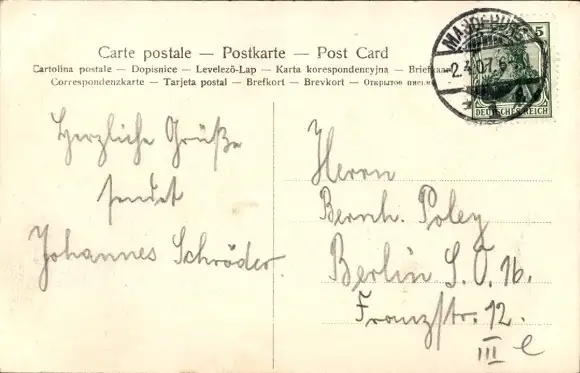 Carte postale — Postkarte — Post Card
Cartolina postale — Dopisnice — Levelező-Lap — Karta korespondencyjna — Briefkaart
Correspondenzkarte — Tarjeta postal — Brefkort — Brevkort — Открытое письмо
MAGDEBURG
2.4.07.6
5
DEUTSCHES REICH
Herzliche Grüße
sendet
Johannes Schröder.
Herrn
Bernh. Poley
Berlin S.O. 16.
Franzstr. 12.
III e